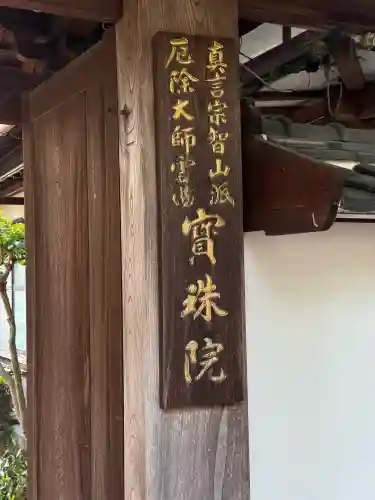 真言宗智山派
厄除大師雲場
寳珠院